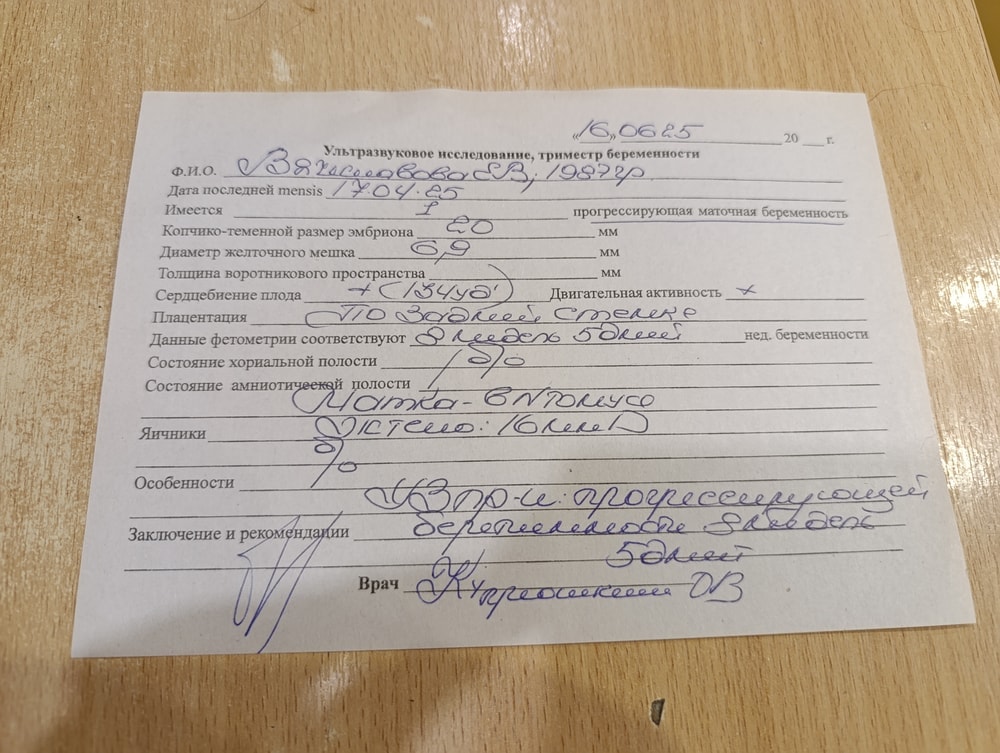 „16„ 0625 20 г.
Ультразвуковое исследование, триместр беременности
Ф.И.О. ЕВ, 1987г
Дата последней mensis 17.04.25
Имеется 1 прогрессирующая маточная беременность
Копчико-теменной размер эмбриона 20 мм
Диаметр желточного мешка 6,9 мм
Толщина воротникового пространства мм
Сердцебиение плода + (134уд') Двигательная активность +
Плацентация По задней стенке
Данные фетометрии соответствуют 8 недель 5 дней нед. беременности
Состояние хориальной полости
Состояние амниотической полости б/о
Матка - в Nтонусе
Яичники 16мм D
б/о
Особенности
УЗ пр-и: прогрессирующей
Заключение и рекомендации беременности 8 недель
5 дней
Врач ОВ